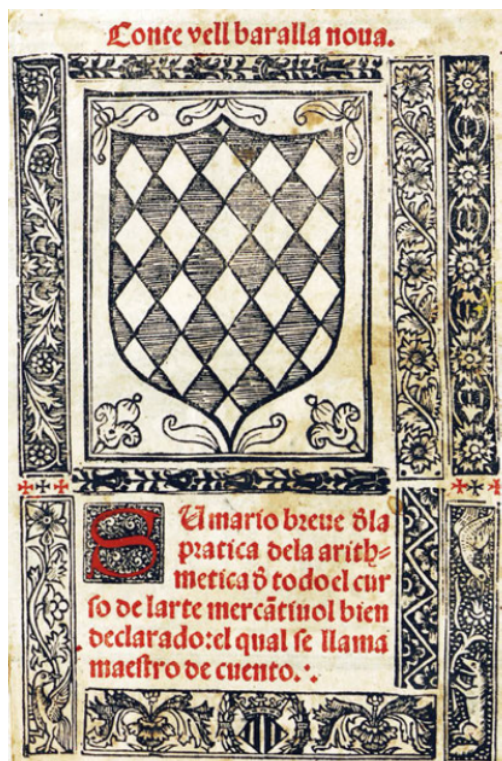 Conte vell baralla noua.
SUmario breue d̄la
pratica dela arith⸗
metica d̄ todo el cur
so de larte mercātiuol bien
declarado:el qual se llama
maestro de cuento.